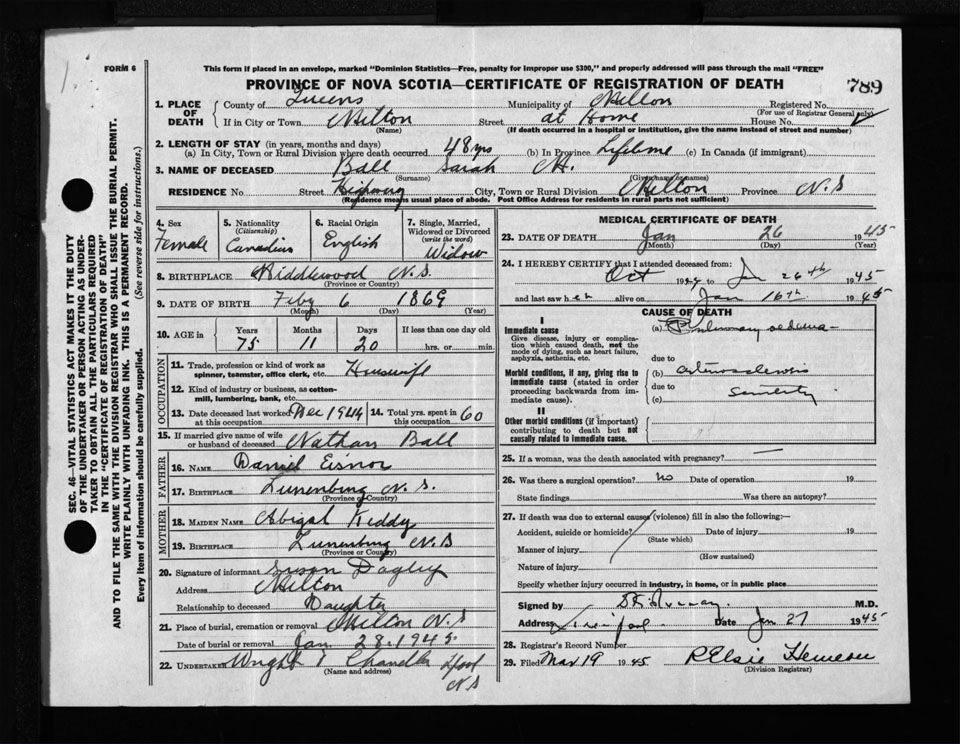 1.
FORM 6
This form if placed in an envelope, marked "Dominion Statistics—Free, penalty for improper use $300," and properly addressed will pass through the mail "FREE"
PROVINCE OF NOVA SCOTIA—CERTIFICATE OF REGISTRATION OF DEATH
789
1. PLACE OF DEATH
County of Queens Municipality of Milton Registered No.
(For use of Registrar General only)
If in City or Town Milton Street at Home House No.
(Name) (If death occurred in a hospital or institution, give the name instead of street and number)
2. LENGTH OF STAY (in years, months and days)
(a) In City, Town or Rural Division where death occurred 48 yrs (b) In Province Lifetime (c) In Canada (if immigrant)
3. NAME OF DECEASED Ball Sarah M.
(Surname) (Given name or names)
RESIDENCE No Street Highway City, Town or Rural Division Milton Province N.S
(Residence means usual place of abode. Post Office Address for residents in rural parts not sufficient)
4. Sex Female
5. Nationality (Citizenship) Canadian
6. Racial Origin English
7. Single, Married, Widowed or Divorced (write the word) Widow
8. BIRTHPLACE Middlewood N.S.
(Province or Country)
9. DATE OF BIRTH Feby 6 1869
(Month) (Day) (Year)
10. AGE in Years Months Days If less than one day old
75 11 20 hrs. or min.
OCCUPATION
11. Trade, profession or kind of work as spinner, teamster, office clerk, etc. Housewife
12. Kind of industry or business, as cotton-mill, lumbering, bank, etc.
13. Date deceased last worked at this occupation Dec 1944
14. Total yrs. spent in this occupation 60
15. If married give name of wife or husband of deceased Nathan Ball
FATHER
16. NAME Daniel Eisnor
17. BIRTHPLACE Lunenburg N.S.
(Province or Country)
MOTHER
18. MAIDEN NAME Abigal Keddy
19. BIRTHPLACE Lunenburg N.S
(Province or Country)
20. Signature of informant Susan Dagley
Address Milton
Relationship to deceased Daughter
21. Place of burial, cremation or removal Milton N.S
Date of burial or removal Jan 28, 1945
22. UNDERTAKER Wright Chandler Lpool
(Name and address) N S
MEDICAL CERTIFICATE OF DEATH
23. DATE OF DEATH Jan 26 1945
(Month) (Day) (Year)
24. I HEREBY CERTIFY that I attended deceased from:
Oct 1944 to Jan 26th 1945
and last saw her alive on Jan 16th 1945
CAUSE OF DEATH
I
Immediate cause
Give disease, injury or complication which caused death, not the mode of dying, such as heart failure, asphyxia, asthenia, etc.
(a) Pulmonary oedema
due to
Morbid conditions, if any, giving rise to immediate cause (stated in order proceeding backwards from immediate cause).
(b) arteriosclerosis
due to
(c) senility
II
Other morbid conditions (if important) contributing to death but not causally related to immediate cause.
25. If a woman, was the death associated with pregnancy? —
26. Was there a surgical operation? no Date of operation 19
State findings Was there an autopsy?
27. If death was due to external causes (violence) fill in also the following:—
Accident, suicide or homicide? Date of injury 19
(State which)
Manner of injury
(How sustained)
Nature of injury
Specify whether injury occurred in industry, in home, or in public place
Signed by M.D.
Address Liverpool Date Jan 27 1945
28. Registrar's Record Number
29. Filed Mar 19 1945
(Division Registrar)
SEC. 46—VITAL STATISTICS ACT MAKES IT THE DUTY
OF THE UNDERTAKER OR PERSON ACTING AS UNDER-
TAKER TO OBTAIN ALL THE PARTICULARS REQUIRED
IN THE "CERTIFICATE OF REGISTRATION OF DEATH"
AND TO FILE THE SAME WITH THE DIVISION REGISTRAR WHO SHALL ISSUE THE BURIAL PERMIT.
WRITE PLAINLY WITH UNFADING INK. THIS IS A PERMANENT RECORD.
Every item of information should be carefully supplied. (See reverse side for instructions.)